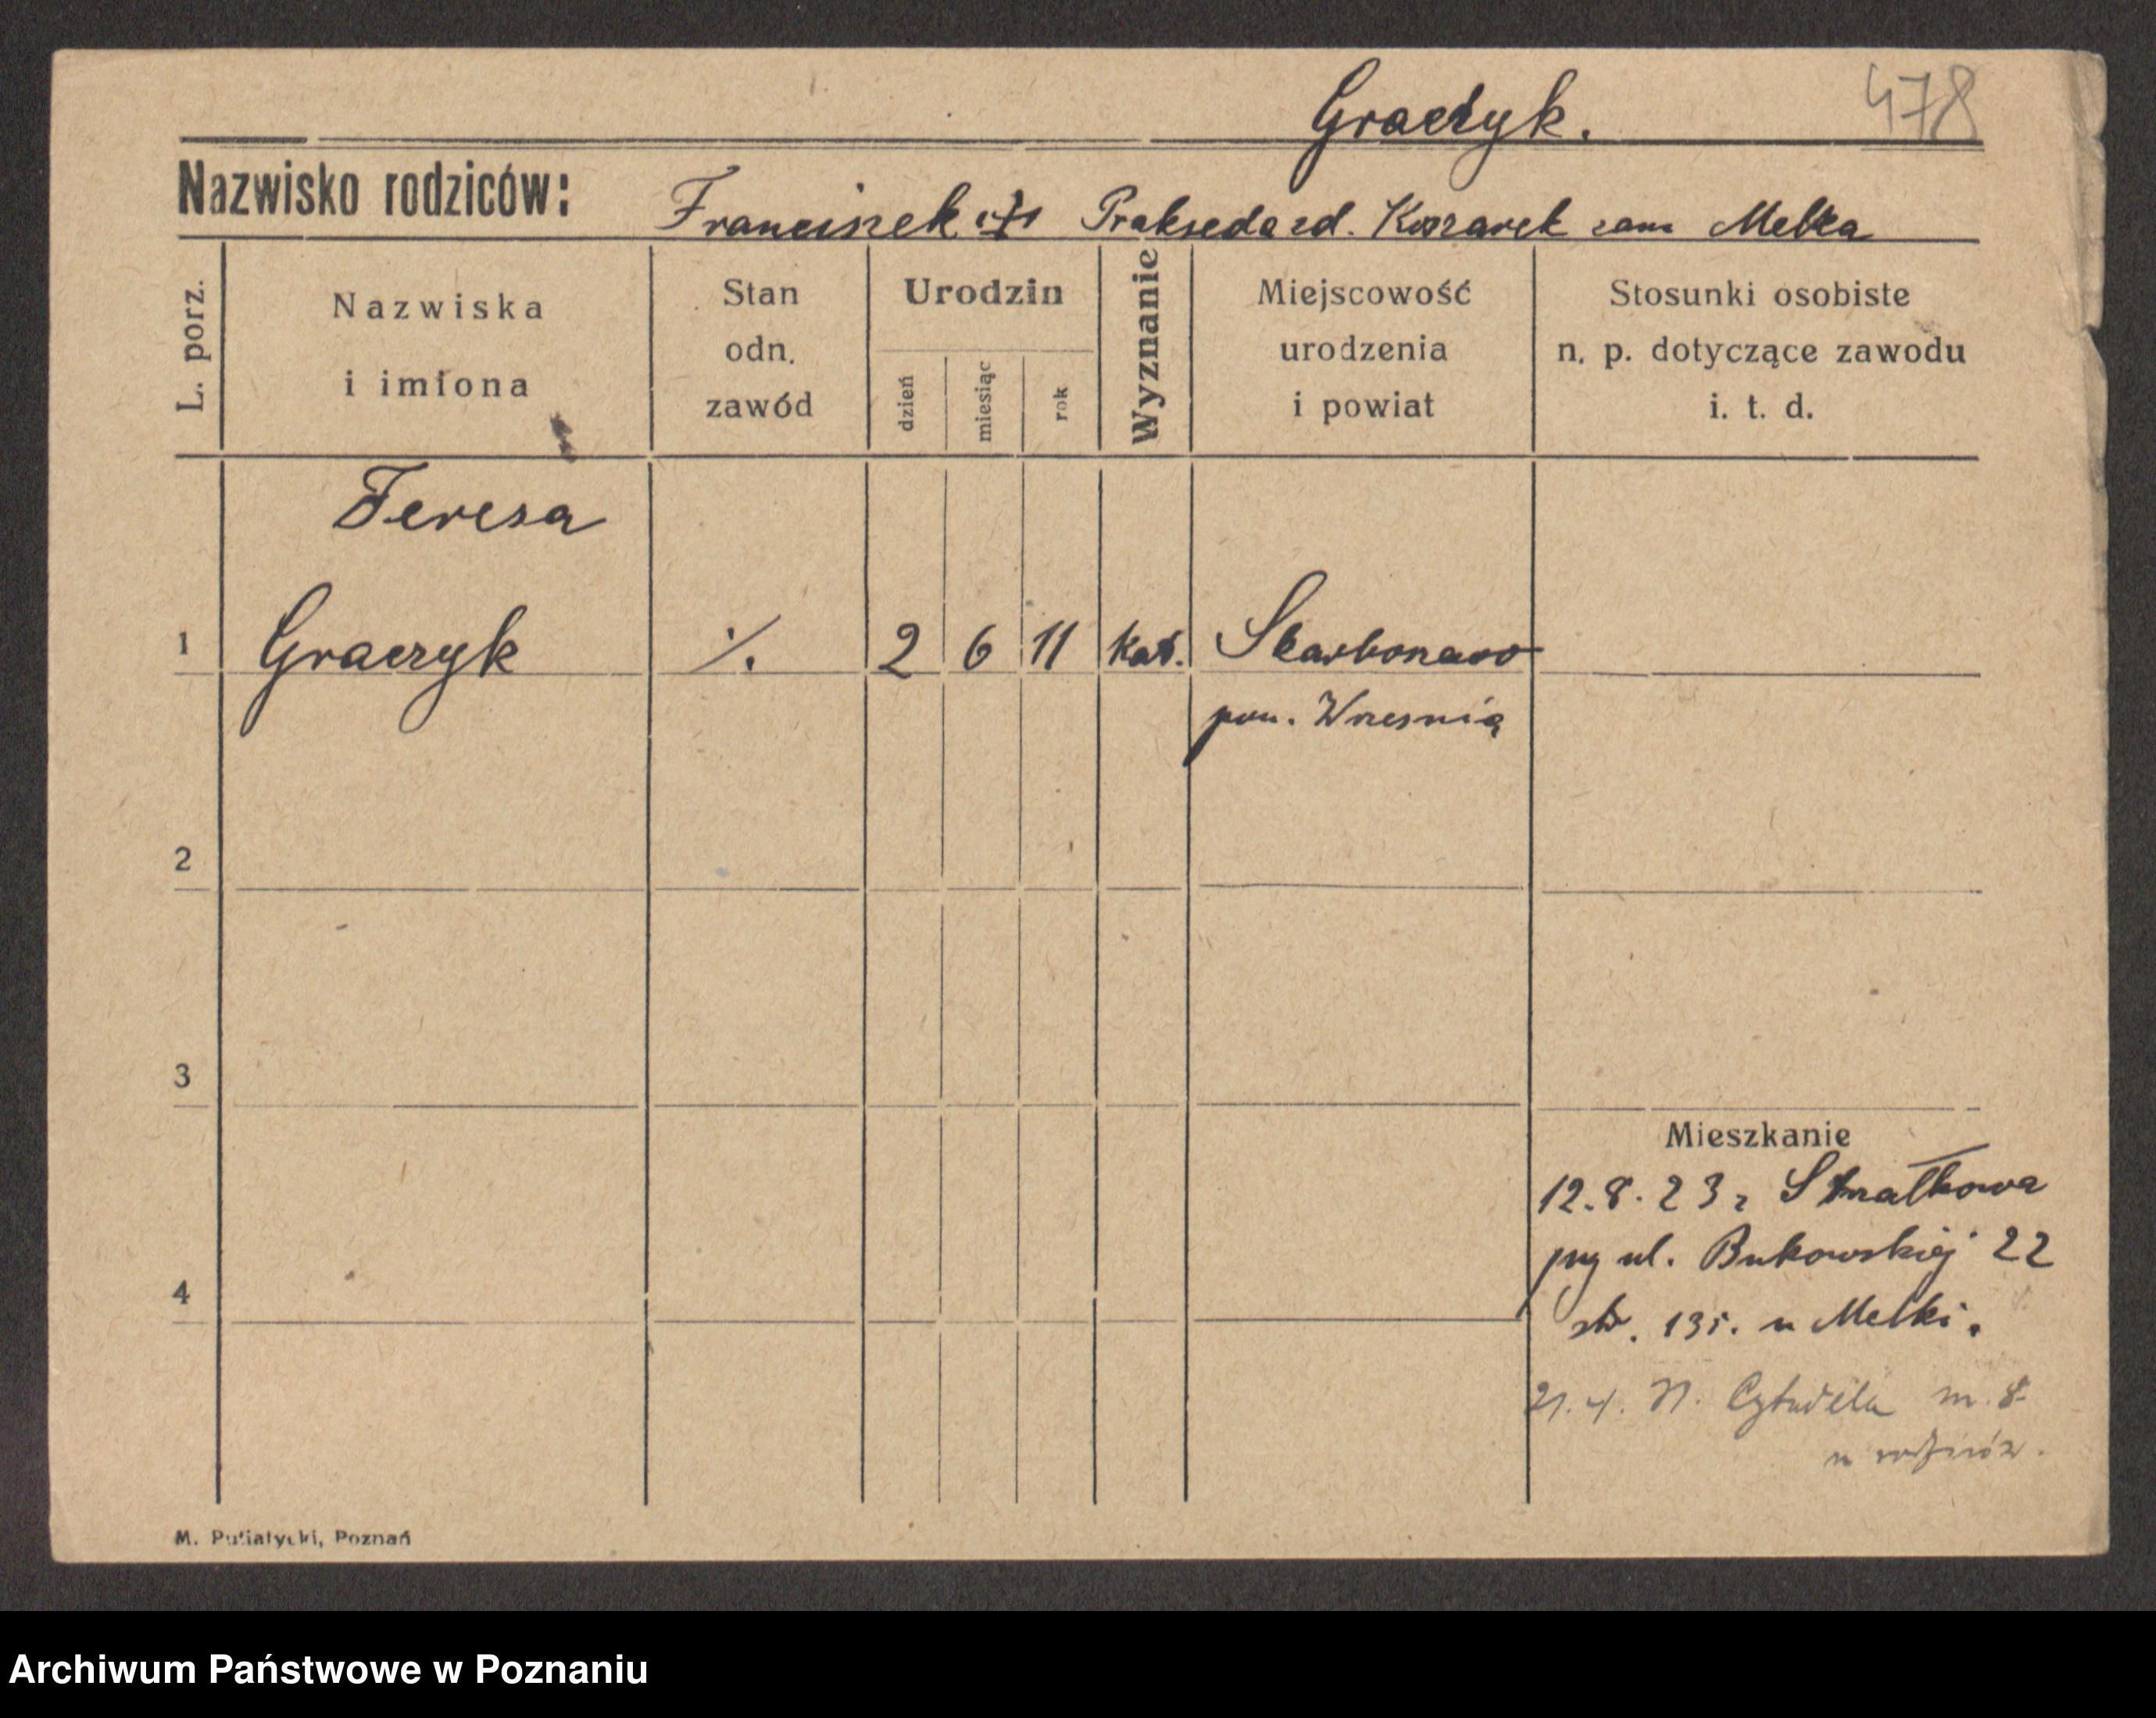 Graczyk. 478
Nazwisko rodziców: Franciszek Prakseda zd. Koszarek zam Melka
L. porz.
Nazwiska
i imiona
Stan
odn.
zawód
Urodzin
dzień
miesiąc
rok
Wyznanie
Miejscowość
urodzenia
i powiat
Stosunki osobiste
n. p. dotyczące zawodu
i. t. d.
Teresa
1 Graczyk ./. 2 6 11 kat. Skarboszewo
pow. Wresnią
2
3
Mieszkanie
12.8.23 z Strzałkowa
przy ul. Bukowskiej 22
4
str. 13 r. u Melki.
21.4. Cytadela m. 8
u rodziców.
M. Putiatycki, Poznań
Archiwum Państwowe w Poznaniu